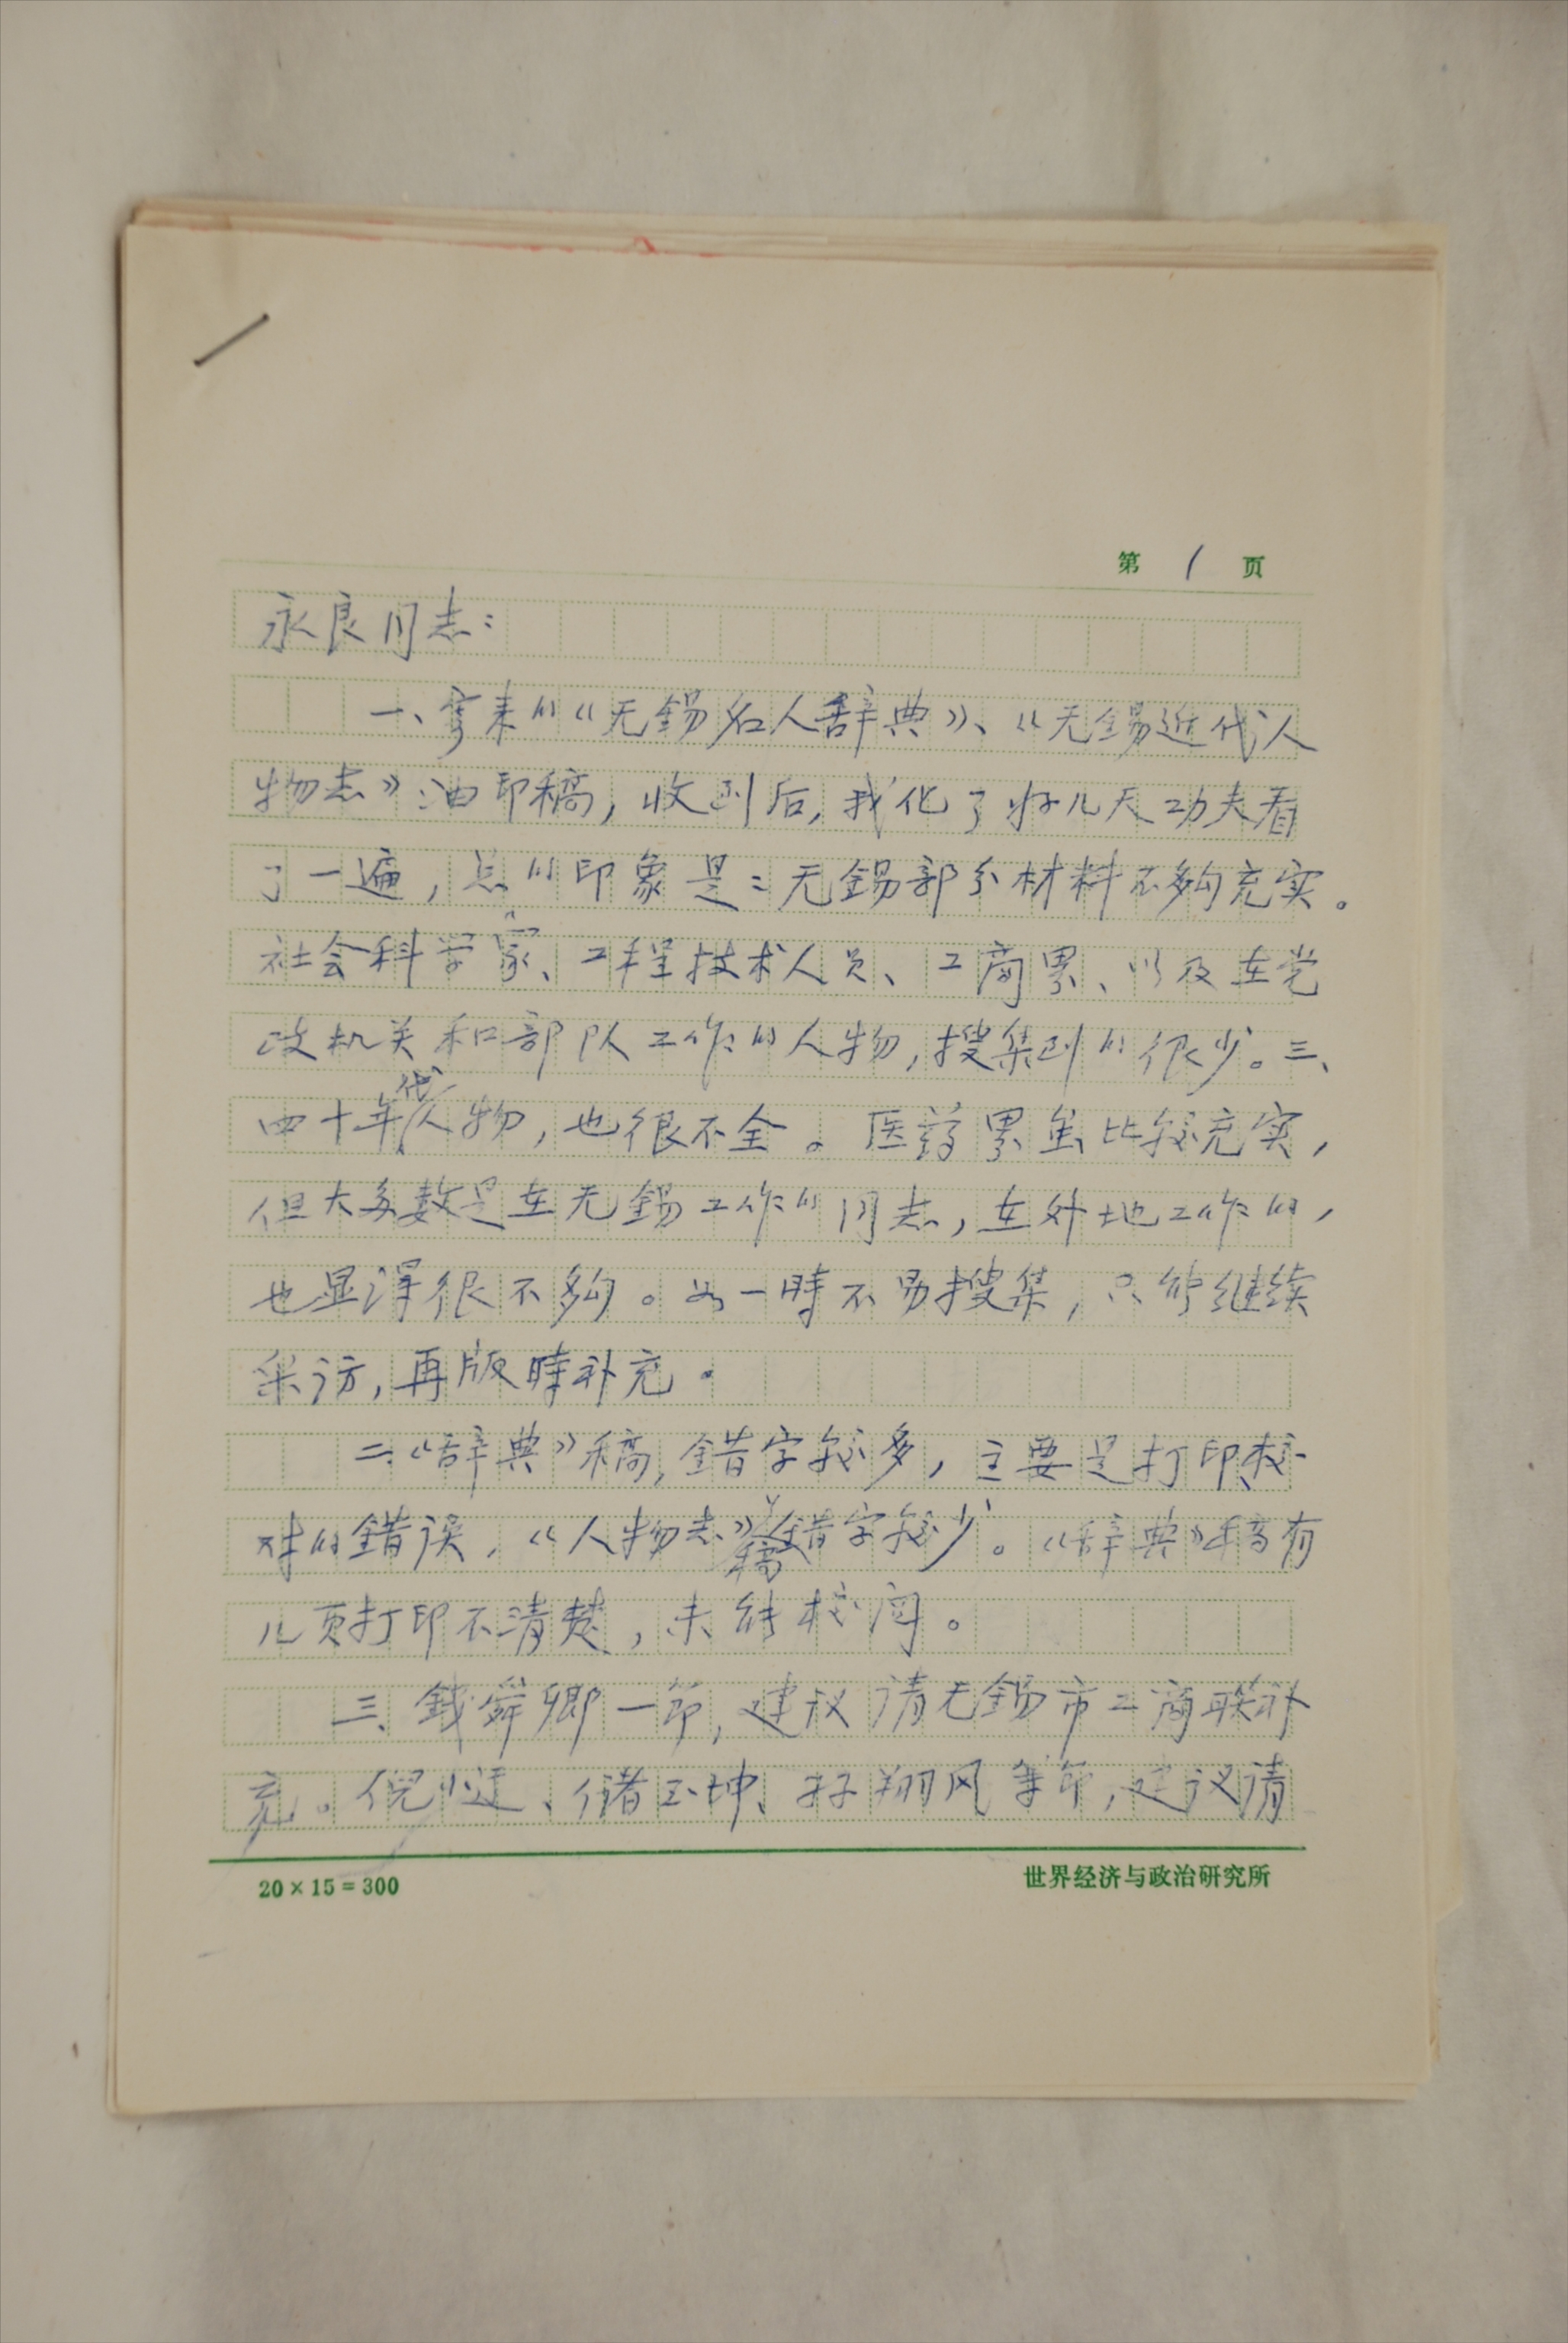 第 1 页
永良同志：
一、寄来的《无錫名人辞典》、《无錫近代人
物志》油印稿，收到后，我化了好几天功夫看
了一遍，总的印象是：无錫部分材料不够充实。
社会科学家、工程技术人员、工商界、以及在党
政机关和部队工作的人物，搜集到的很少。三、
四十年代人物，也很不全。医药界虽比较充实，
但大多数是在无錫工作的同志，在外地工作的，
也显得很不够。如一時不易搜集，只能继续
采访，再版時补充。
二、《辞典》稿，錯字较多，主要是打印、校
对的錯误，《人物志》稿錯字较少。《辞典》稿有
几页打印不清楚，未能校阅。
三、錢舜卿一節，建议请无錫市工商联补
充。倪 、储玉坤、孙翔风等节，建议请
20×15=300
世界经济与政治研究所